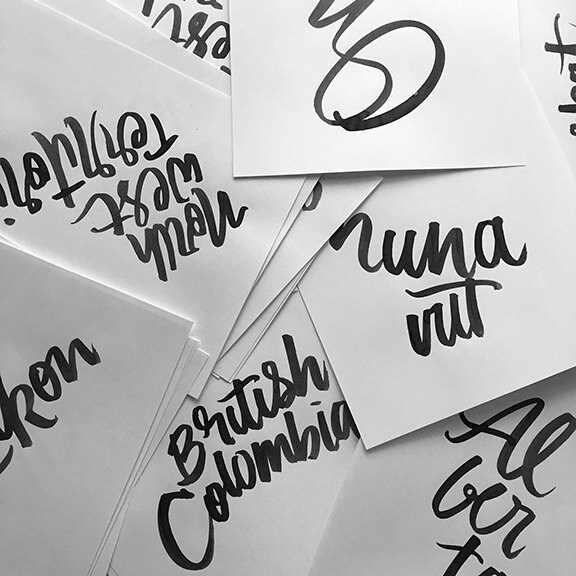 north
west
territori
nuna
vut
kon
British
Colombia
Al
ber
ta